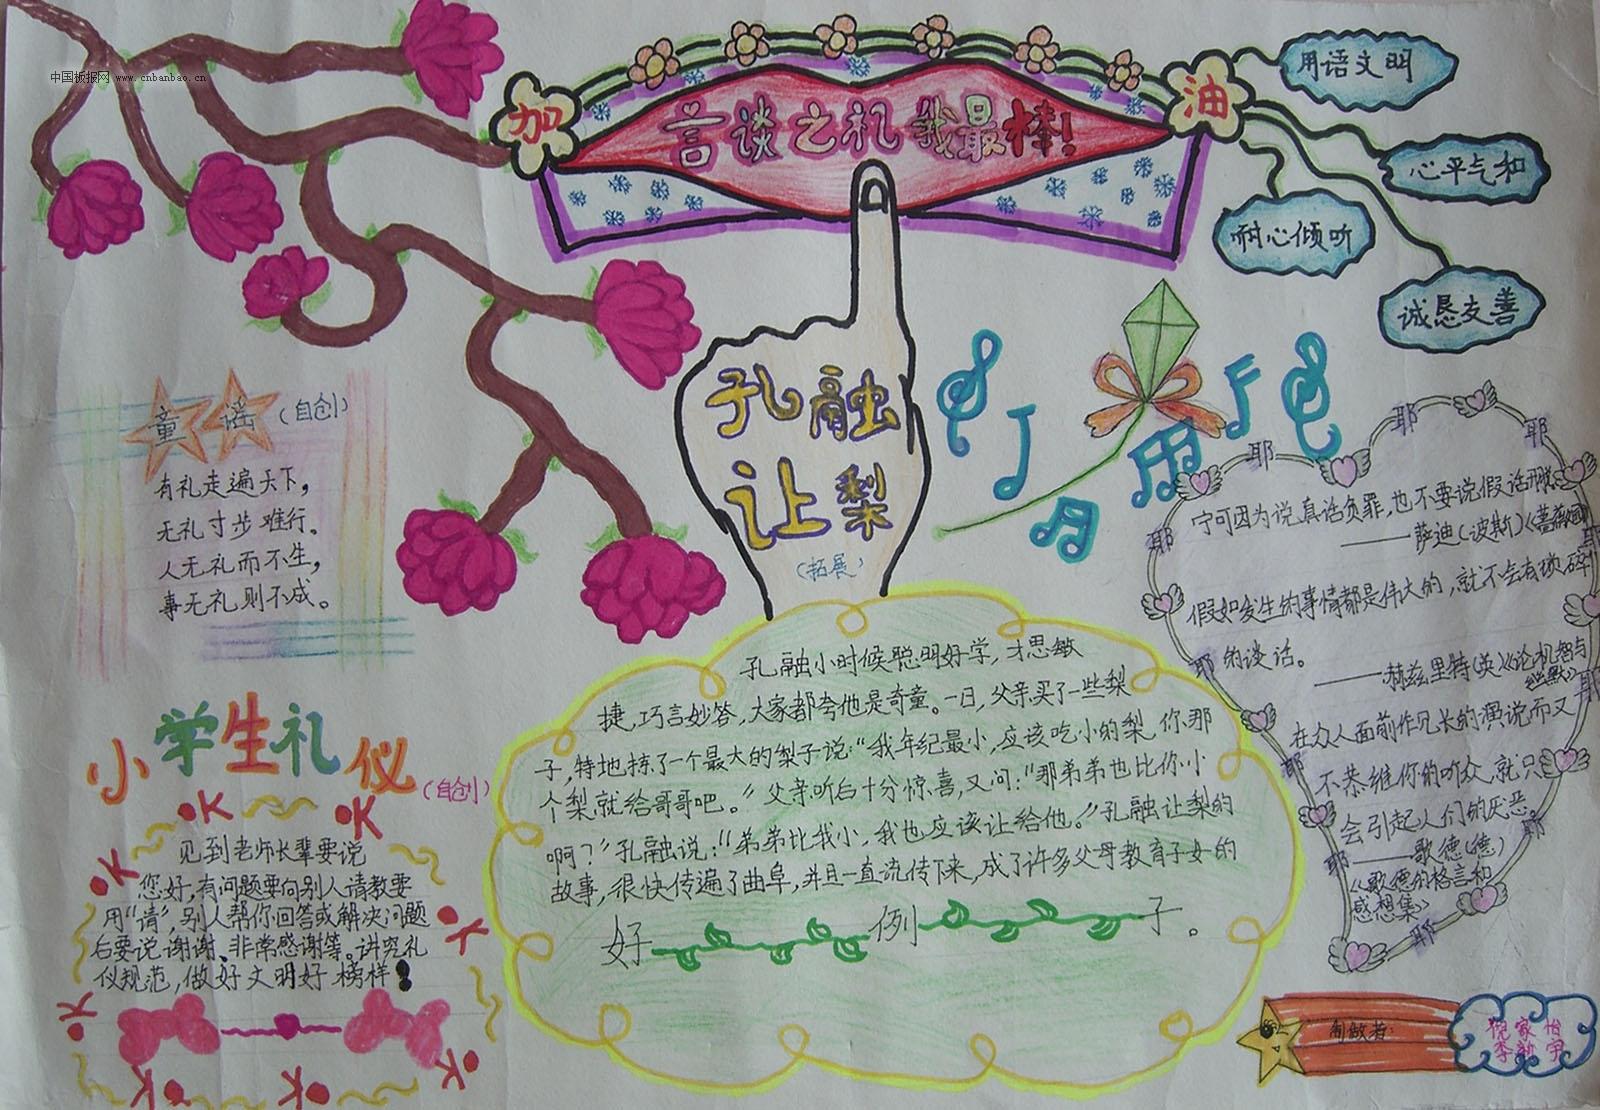 中国板报网 www.cnbanbao.cn
加
油
言谈之礼我最棒!
用语文明
心平气和
耐心倾听
诚恳友善
孔融
让梨
(拓展)
童谣(自创)
有礼走遍天下,
无礼寸步难行。
人无礼而不生,
事无礼则不成。
小学生礼仪
(自创)
见到老师长辈要说
您好,有问题要向别人请教要
用"请",别人帮你回答或解决问题
后要说谢谢、非常感谢等。讲究礼
仪规范,做好文明好榜样!
孔融小时候聪明好学,才思敏
捷,巧言妙答,大家都夸他是奇童。一日,父亲买了一些梨
子,特地拣了一个最大的梨子说:"我年纪最小,应该吃小的梨,你那
个梨就给哥哥吧。"父亲听后十分惊喜,又问:"那弟弟也比你小
啊?"孔融说:"弟弟比我小,我也应该让给他。"孔融让梨的
故事,很快传遍了曲阜,并且一直流传下来,成了许多父母教育子女的
好 例 子。
耶 耶 耶
宁可因为说真话负罪,也不要说假话开脱
——萨迪(波斯)《蔷薇园》
假如发生的事情都是伟大的,就不会有琐碎
的谈话。
——赫兹里特(英)《论机智与
幽默》
在众人面前作冗长的演说而又
不恭维你的听众,就只
会引起人们的厌恶
——歌德(德)
《歌德的格言和
感想集》
制做者:
倪家怡